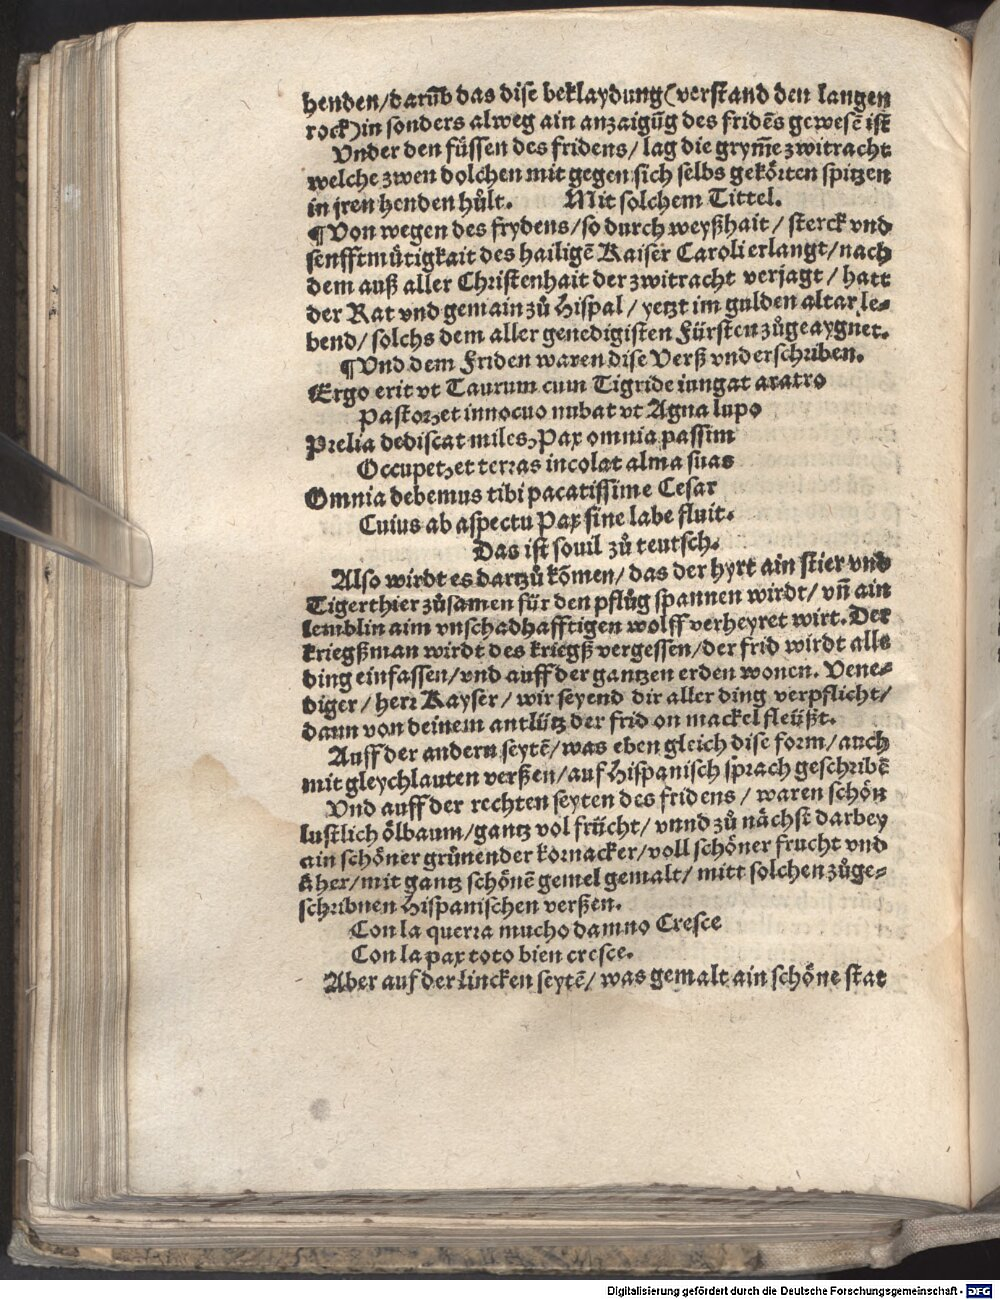 henden/darũb das dise beklaydung (verstand den langen
rock) in sonders alweg ain anzaigũg des fridẽs gewesẽ ist
Vnder den füssen des fridens/ lag die grym̃e zwitracht
welche zwen dolchen mit gegen sich selbs gekörten spitzen
in jren henden hůlt. Mit solchem Tittel.
¶Von wegen des frydens/so durch weyßhait/ sterck vnd
senfftmůtigkait des hailigẽ Kaiser Caroli erlangt/nach
dem auß aller Christenhait der zwitracht verjagt/ hatt
der Rat vnd gemain zů Hispal/ yetzt im gulden altar le-
bend/ solchs dem aller genedigisten Fürsten zůgeaygnet.
¶Vnd dem Friden waren dise Verß vnderschriben.
Ergo erit vt Taurum cum Tigride iungat aratro
Pastor, et innocuo nubat vt Agna lupo
Prelia dediscat miles, Pax omnia passim
Occupet, et terras incolat alma suas
Omnia debemus tibi pacatissime Cesar
Cuius ab aspectu Pax sine labe fluit.
Das ist souil zů teutsch.
Also wirdt es dartzů kõmen/ das der hyrt ain stier vnd
Tigerthier zůsamen für den pflůg spannen wirdt/ vñ ain
lemblin aim vnschadhafftigen wolff verheyret wirt. Der
kriegßman wirdt des kriegß vergessen/der frid wirdt alle
ding einfassen/vnd auff der gantzen erden wonen. Vene-
diger/ herr Kayser/ wir seyend dir aller ding verpflicht/
dann von deinem antlütz der frid on mackel fleüßt.
Auff der andern seytẽ/was eben gleich dise form/auch
mit gleychlauten verßen/auf Hispanisch sprach geschribẽ
Vnd auff der rechten seyten des fridens/ waren schön
lustlich ölbaum/gantz vol frücht/ vnnd zů nächst darbey
ain schöner grünender kornacker/voll schöner frucht vnd
äher/mit gantz schönẽ gemel gemalt/ mitt solchen zůge-
schribnen Hispanischen verßen.
Con la querra mucho damno Cresce
Con la pax toto bien cresce.
Aber auf der lincken seytẽ/ was gemalt ain schöne stat
Digitalisierung gefördert durch die Deutsche Forschungsgemeinschaft - DFG